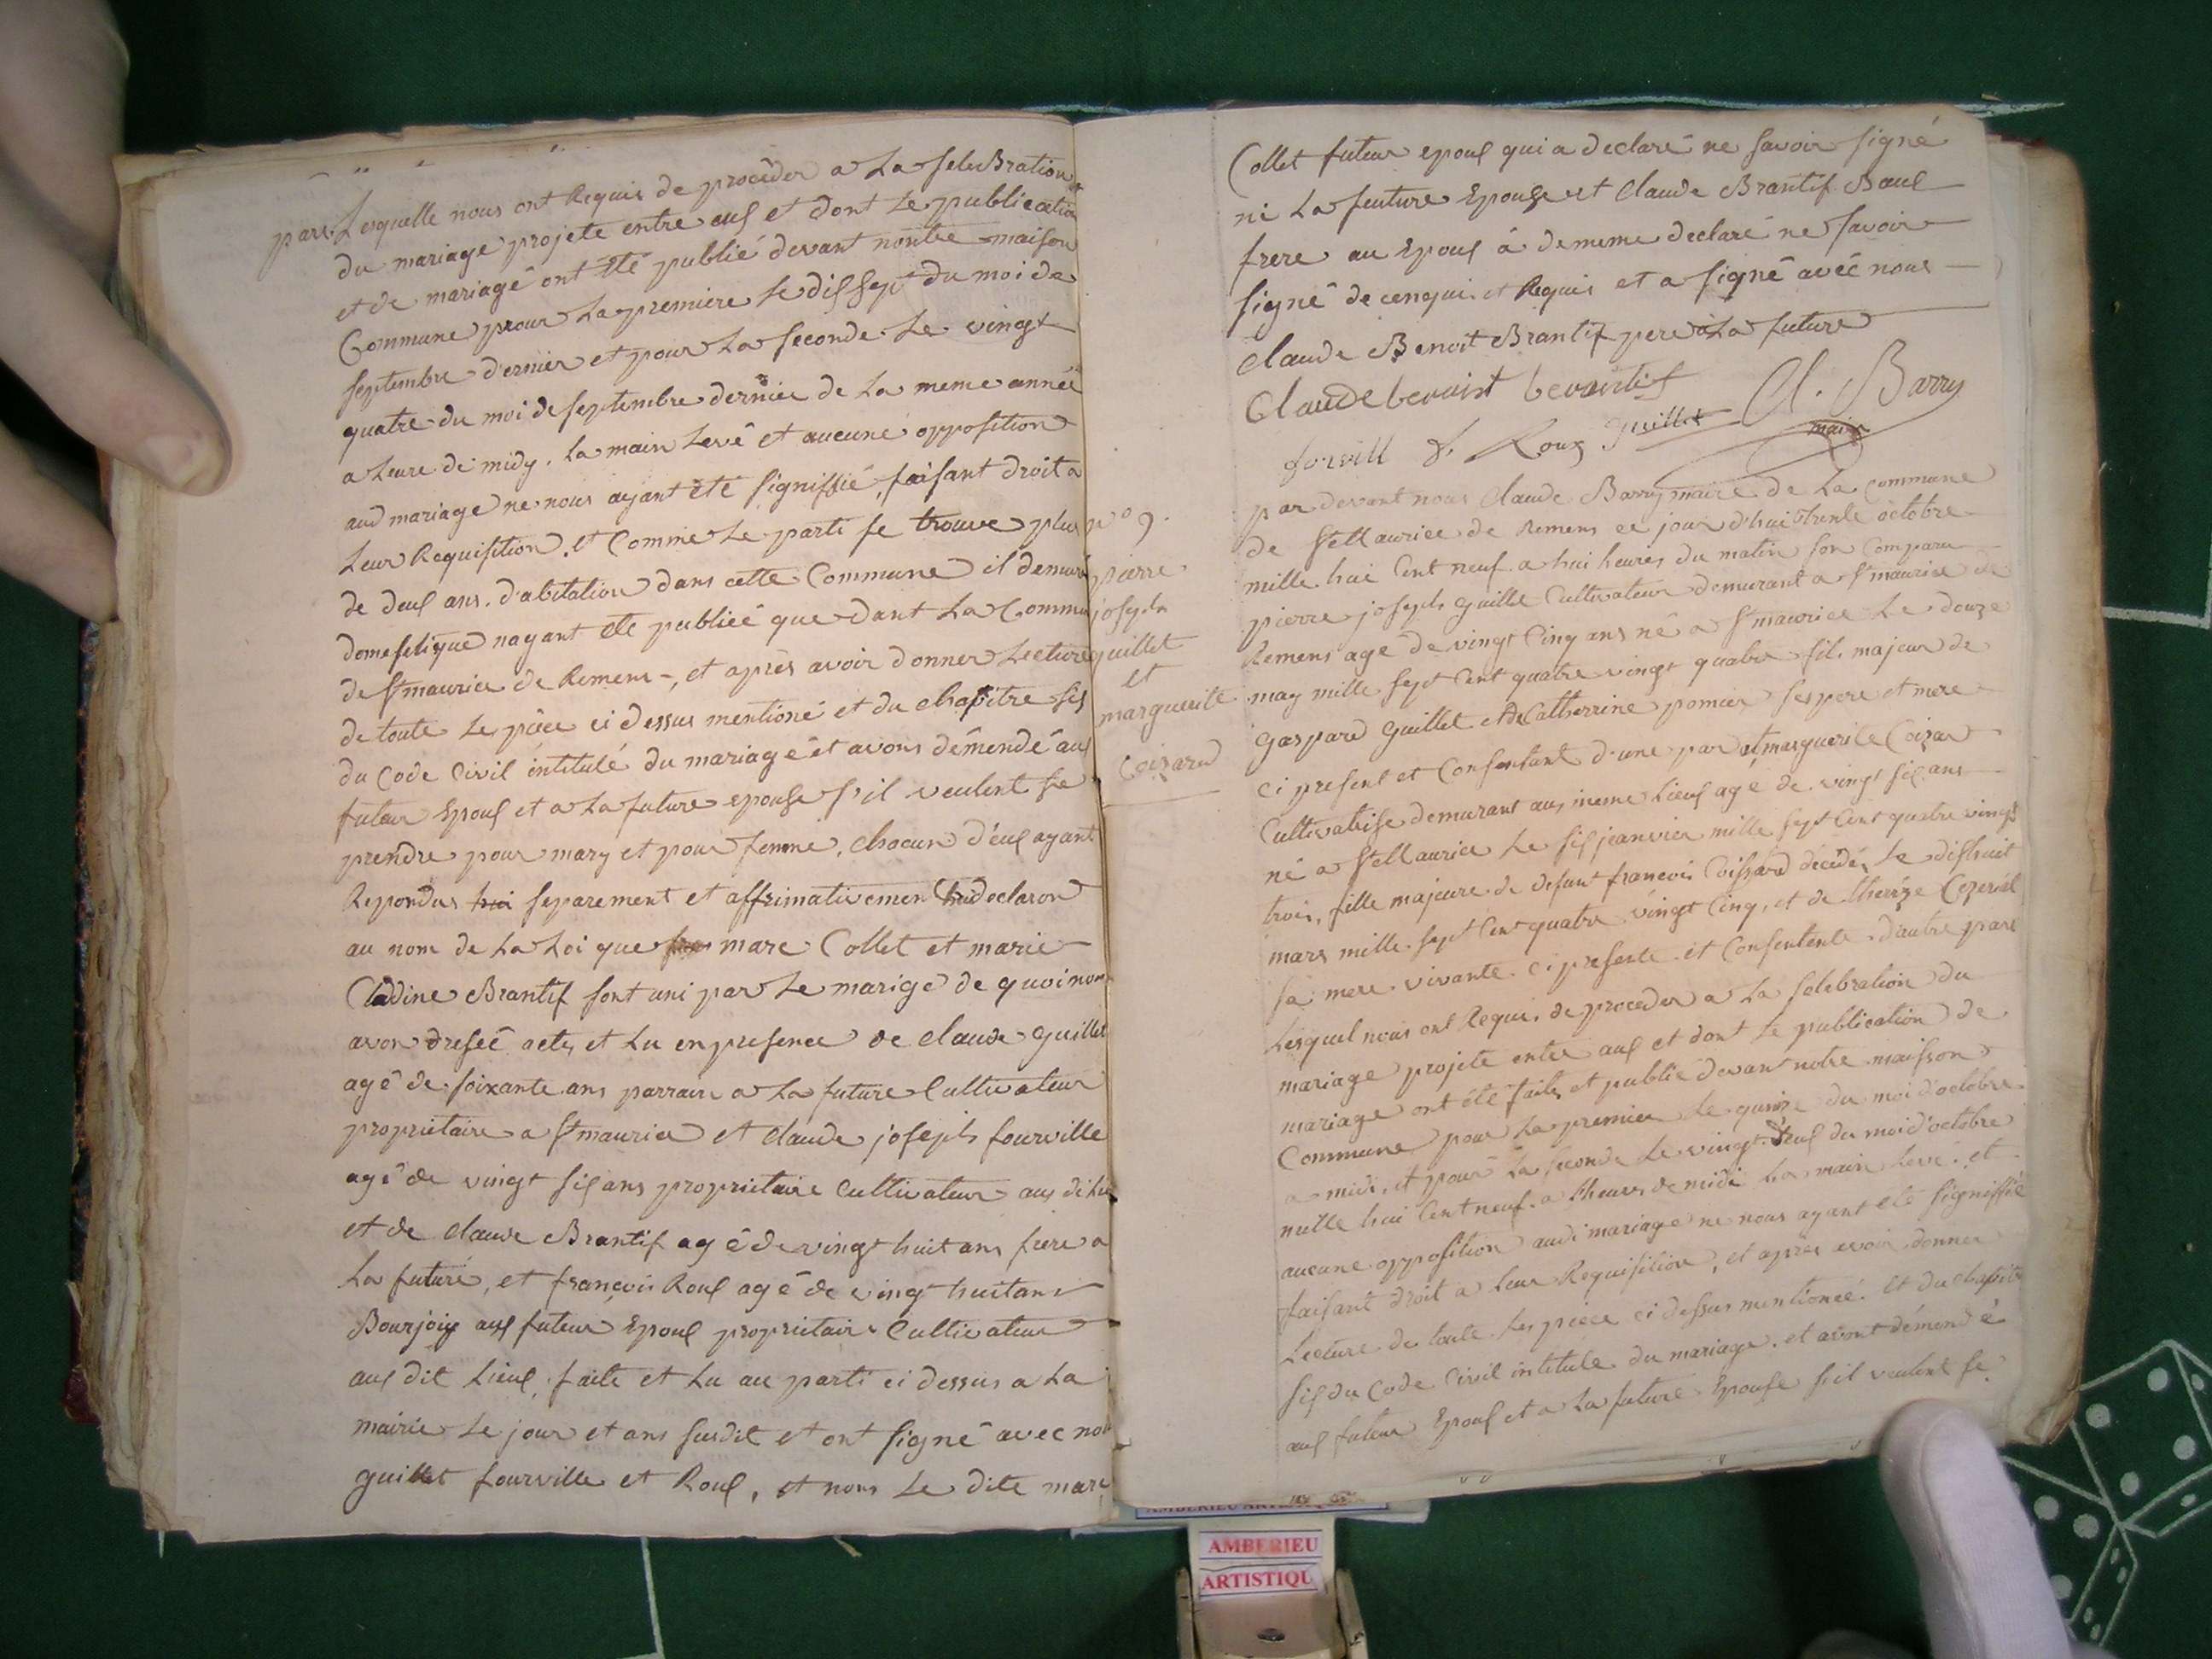 part. Lesquelle nous ont Requis de procéder a La selebration
du mariage projeté entre eux et dont Le publication
et de mariagé ont été publié devant nontre maison
Commune pour La premiere Le dix sept du moi de
septembre dernier et pour La seconde Le vingt
quatre du moi de septembre dernièe de La meme année
a heure de midy. La main Levé et aucune opposition
aud mariage ne nous ayant été signiffié, faisant droit a
Leur Requisition, et Comme Le parti se trouve plus
de deux ans d'abitation dans cette Commune il demure
domestique nayant été publiée que dant La Commu
de St maurice de Remens, et après avoir donner Lecture
de toute Les pièce ci dessus mentioné et du chapitre six
du Code Civil intitulé du mariagé et avons démendé aux
futeur Epoux et a La future epouse s'il veulent se
prendre pour mary et pour femme, chacun d'eux ayant
Repondus separement et affirmativemen declaron
au nom de La Loi que marc Collet et marie
Cladine Brantif sont uni par Le marige de quoi nous
avon dresée acte, et Lu en presence de claude guillet
agé de soixante ans parrain a La future Cultivateur
proprietaire a St maurice et claude joseph fourville
agé de vingt six ans proprietaire Cultivateur aux dit Lieu
et de claude Brantif agé de vingt huit ans frere a
La futuré, et françois Roux agé de vingt huit ans
Bourjoix aux futeur Epoux proprietaire Cultivateur
aux dit Lieux, faite et Lu au parti ci dessus a La
mairie Le jour et ans susdit et ont signé avec nou
guillet fourville et Roux, et nous Le dite marc
Collet futeur epoux qui a declaré ne savoir signé
ni La feuture Epouse et claude Brantif Baux
frere au Epoux á dememe declaré ne savoir
signé de cenquis et Requis et a signé avéc nous
claude Benoit Brantif pere à La future
Claude benoist berantif Cl. Barry
forvill f. Roux guillet maire
par devant nous claude Barry maire de La Commune
de St Maurice de Remens ce jour d'hui trente octobre
N° 9.
pierre
joseph
guillet
et
marguerite
Coizard
mille hui Cent neuf a hui heures du matin son Comparu
pierre joseph guillet Cultivateur demurant a St maurice de
Remens agé de vingt Cinq ans né a St maurice Le douze
may mille sept Cent quatre vingt quatre fil majeur de
gaspard guillet et de Catherrine pomier ses pere et mere
ci present et Consentant d'une par et marguerite Coizar
Cultivatrise demurant aux meme Lieux agé de vingt six ans
né a St Maurice Le six jeanvier mille sept Cent quatre vingt
trois, fille majeure de defunt françois Coissard décédé, Le dishuit
mars mille sept Cent quatre vingt Cinq, et de therèze
sa mere vivante ci presente et Consentente d'autre part
Lesquel nous ont Requi, de proceder a La selebration du
mariage projeté entre aux et dont Le publication de
mariage ont été faite, et publié devant notre maisson
Commune pour La premier Le quinze du moi d'octobre
a midi, et pour La seconde Le vingt deux du moi d'octobre
mille hui Cent neuf a lheures de midi La main Levé et
aucune opposition audi mariage ne nous ayant été signiffié
faisant droit a Leur Requisition, et apres avoir donner
Lecture de toute Les pièce ci dessus mentionéé. et du chapitre
six du Code Civil intitulé du mariage, et avont démendé
aux futeur Epoux et a La future Epouse s'il veulent se
AMBERIEU
ARTISTIQU